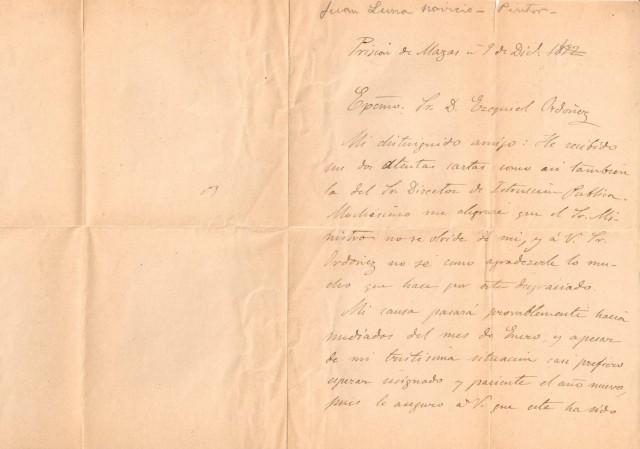 Juan Luna Novicio - Pintor -
Prisión de Mazas á 9 de Dic. 1892
Exćmo. Sr. D. Ezequiel Ordóñez
Mi distinguido amigo: He recibido
sus dos atentas cartas como asi tambien
la del Sor Director de Public.
Muchisimo me alegrare que el Sr. Mi-
nistro no se olvide de mi, y á V. Sr.
Ordóñez no se como agradecerle lo mu-
cho que hace por este desgraciado.
Mi causa pasará provablemente hacia
mediados del mes de Enero, y apesar
de mi tristisima situacion casi prefiero
esperar resignado y paciente el año nuevo,
pues le aseguro á V. que este ha sido